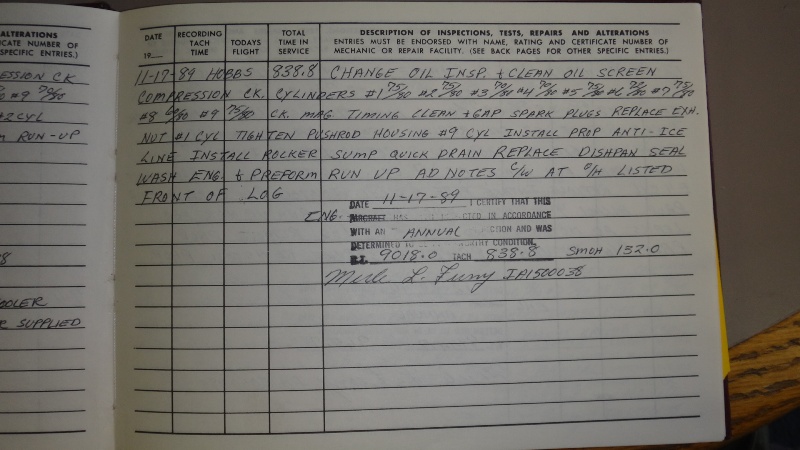 ALTERATIONS
CATE NUMBER OF
SPECIFIC ENTRIES.)
ESSION CK
#9 70/80
#2 CYL
RUN-UP
8
OOLER
SUPPLIED
DATE
19
RECORDING
TACH
TIME
TODAYS
FLIGHT
TOTAL
TIME IN
SERVICE
DESCRIPTION OF INSPECTIONS, TESTS, REPAIRS AND ALTERATIONS
ENTRIES MUST BE ENDORSED WITH NAME, RATING AND CERTIFICATE NUMBER OF
MECHANIC OR REPAIR FACILITY. (SEE BACK PAGES FOR OTHER SPECIFIC ENTRIES.)
11-17-89 HOBBS 838.8 CHANGE OIL INSP. & CLEAN OIL SCREEN
COMPRESSION CK. CYLINDERS #1 75/80 #2 75/80 #3 70/80 #4 70/80 #5 75/80 #6 70/80 #7 75/80
#8 60/80 #9 75/80 CK. MAG. TIMING CLEAN & GAP SPARK PLUGS REPLACE EXH.
NUT #1 CYL TIGHTEN PUSHROD HOUSING #9 CYL INSTALL PROP ANTI-ICE
LINE INSTALL ROCKER SUMP QUICK DRAIN REPLACE DISHPAN SEAL
WASH ENG. & PREFORM RUN UP AD. NOTES C/W AT O/H LISTED
FRONT OF LOG
DATE 11-17-89 I CERTIFY THAT THIS
ENG. AIRCRAFT HAS IN ACCORDANCE
WITH AN ANNUAL CTION AND WAS
DETERMINED TO CONDITION.
9018.0 TACH 838.8 SMOH 132.0
Merle L. IA1500038